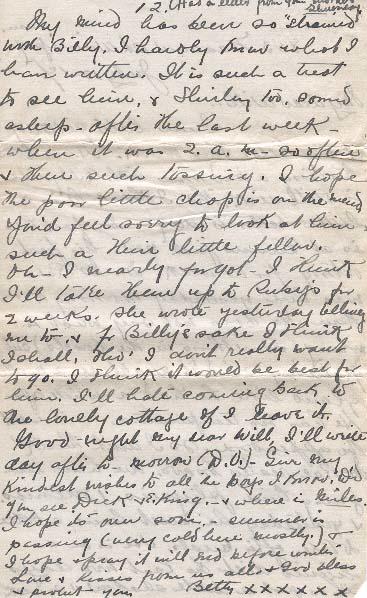 12. (Had a letter from your mother
My mind has been so "strained"
with Billy. I hardly know what I
have written. It is such a rest
to see him, & Shirley too, sound
asleep - after the last week -
when it was 2. a. m - so often
& then such tossing. I hope
the poor little chap is on the mend
You'd feel sorry to look at him -
such a thin little fellow.
Oh - I nearly forgot - I think
I'll take them up to Ruby's for
2 weeks. She wrote yesterday telling
me to. & for Billy's sake I think
I shall, tho' I don't really want
to go. I think it would be best for
him. I'll hate coming back to
the lonely cottage if I leave it.
Good-night my dear Will, I'll write
day after to-morrow (D.V.) - Give my
kindest wishes to all the boys I know. Did
you see Dick & E. King - & where is Miles.
I hope to our soon. - summer is
passing (very cold here mostly.) &
I hope & pray it will end before winter
Love & kisses from us all. & God bless
& protect you Betty x x x x x x